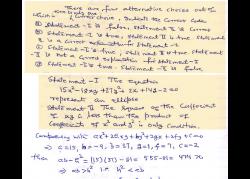 There are four alternative choices out of
which only one is correct. Select the correct code
① Statement-I is false, statement II is correct
② Statement-I is true, statement II is true statement
II is a correct explanation for statement-I
③ Statement-I is true, statement II is true statement
-II is not a correct explanation for statement-I
④ Statement-I is true statement-II is false
Statement-I The equation
15x²-18xy+37y²+2x+14y-2=0
represent an ellipse
Statement II The square of the coefficient
of xy is less than the product of
coefficient of x² and y² is only condition.
Comparing with ax²+2hxy+by²+2gx+2fy+c=0
a=15, h=-9, b=37, g=1, f=7, c=-2
then ab-h²=(15)(37)-81=555-81=474
⇒ ab>h² i.e. h²<ab